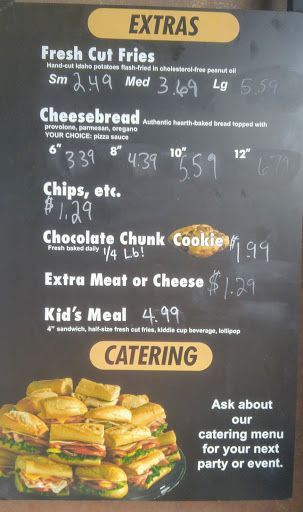 EXTRAS
Fresh Cut Fries
Hand-cut Idaho potatoes flash-fried in cholesterol-free peanut oil
Sm 2.49 Med 3.69 Lg 5.59
Cheesebread Authentic hearth-baked bread topped with
provolone, parmesan, oregano
YOUR CHOICE: pizza sauce
6" 3.39 8" 4.39 10" 5.59 12" 6.79
Chips, etc.
$1.29
Chocolate Chunk Cookie $1.99
Fresh baked daily 1/4 Lb!
Extra Meat or Cheese $1.29
Kid's Meal 4.99
4" sandwich, half-size fresh cut fries, kiddie cup beverage, lollipop
CATERING
Ask about
our
catering menu
for your next
party or event.